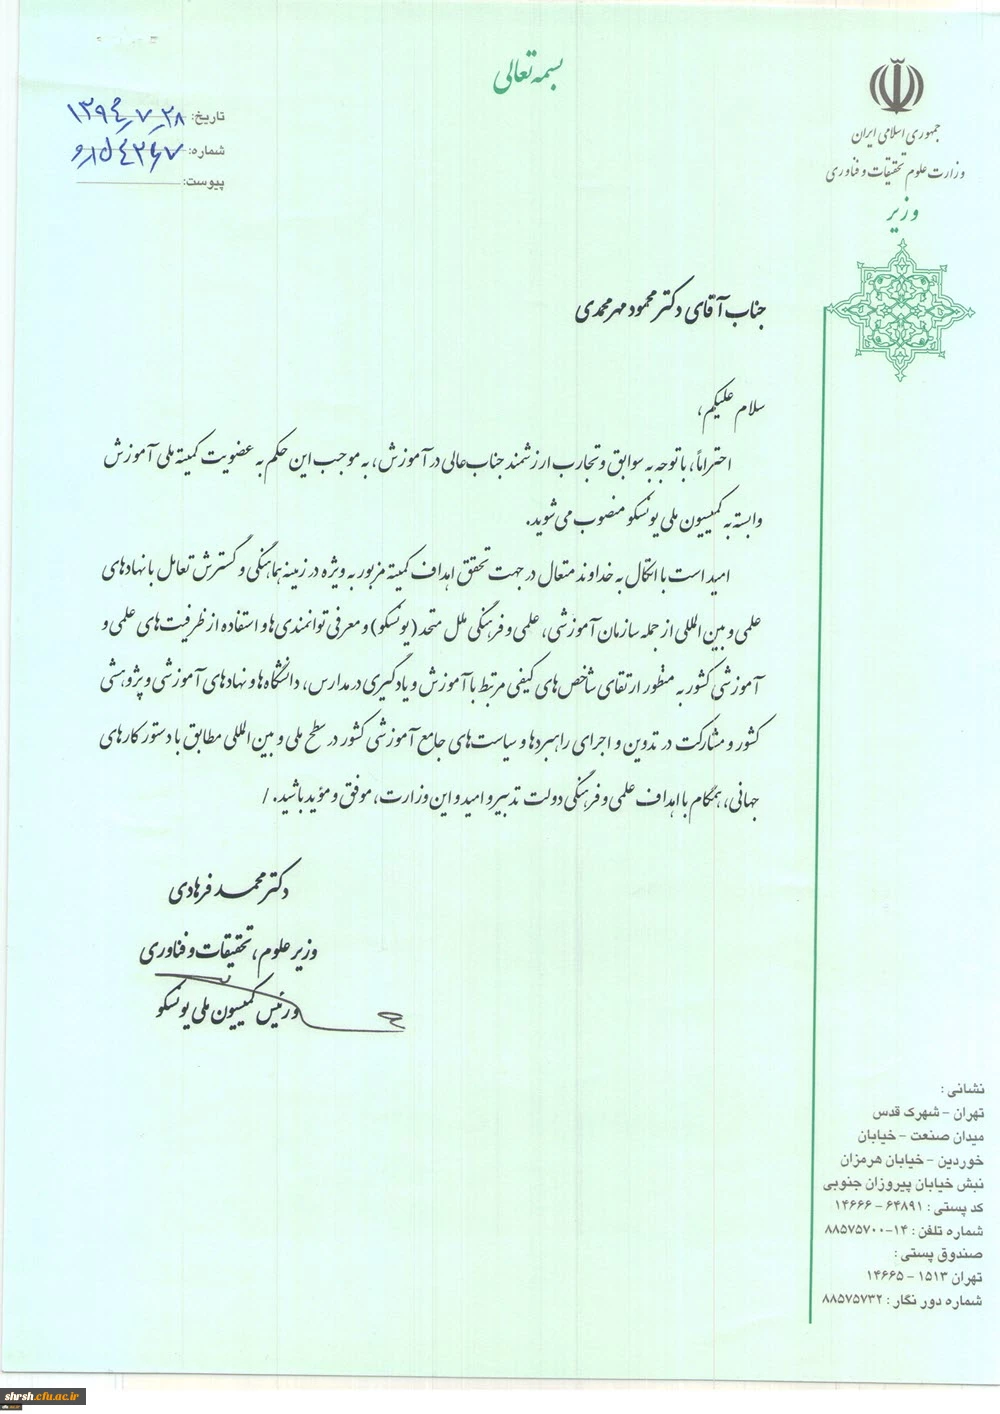 بسمه تعالی
جمهوری اسلامی ایران
وزارت علوم تحقیقات و فناوری
وزیر
تاریخ: ۱۳۹۴٫۷٫۲۸
شماره:
پیوست:
جناب آقای دکتر محمود مهرمحمدی
سلام علیکم،
احتراماً، با توجه به سوابق و تجارب ارزشمند جناب‌عالی در آموزش، به موجب این حکم به عضویت کمیته ملی آموزش
وابسته به کمیسیون ملی یونسکو منصوب می‌شوید.
امید است با اتکال به خداوند متعال در جهت تحقق اهداف کمیته مزبور به ویژه در زمینه هماهنگی و گسترش تعامل با نهادهای
علمی و بین المللی از جمله سازمان آموزشی، علمی و فرهنگی ملل متحد (یونسکو) و معرفی توانمندی‌ها و استفاده از ظرفیت‌های علمی و
آموزشی کشور به منظور ارتقای شاخص‌های کیفی مرتبط با آموزش و یادگیری در مدارس، دانشگاه‌ها و نهادهای آموزشی و پژوهشی
کشور و مشارکت در تدوین و اجرای راهبردها و سیاست‌های جامع آموزشی کشور در سطح ملی و بین المللی مطابق با دستور کارهای
جهانی، همگام با اهداف علمی و فرهنگی دولت تدبیر و امید و این وزارت، موفق و مؤید باشید. /
دکتر محمد فرهادی
وزیر علوم، تحقیقات و فناوری
و رئیس کمیسیون ملی یونسکو
نشانی :
تهران - شهرک قدس
میدان صنعت - خیابان
خوردین - خیابان هرمزان
نبش خیابان پیروزان جنوبی
کد پستی : ۶۴۸۹۱ - ۱۴۶۶۶
شماره تلفن : ۱۴-۸۸۵۷۵۷۰۰
صندوق پستی :
تهران ۱۵۱۳ - ۱۴۶۶۵
شماره دور نگار : ۸۸۵۷۵۷۳۲
shrsh.cfu.ac.ir